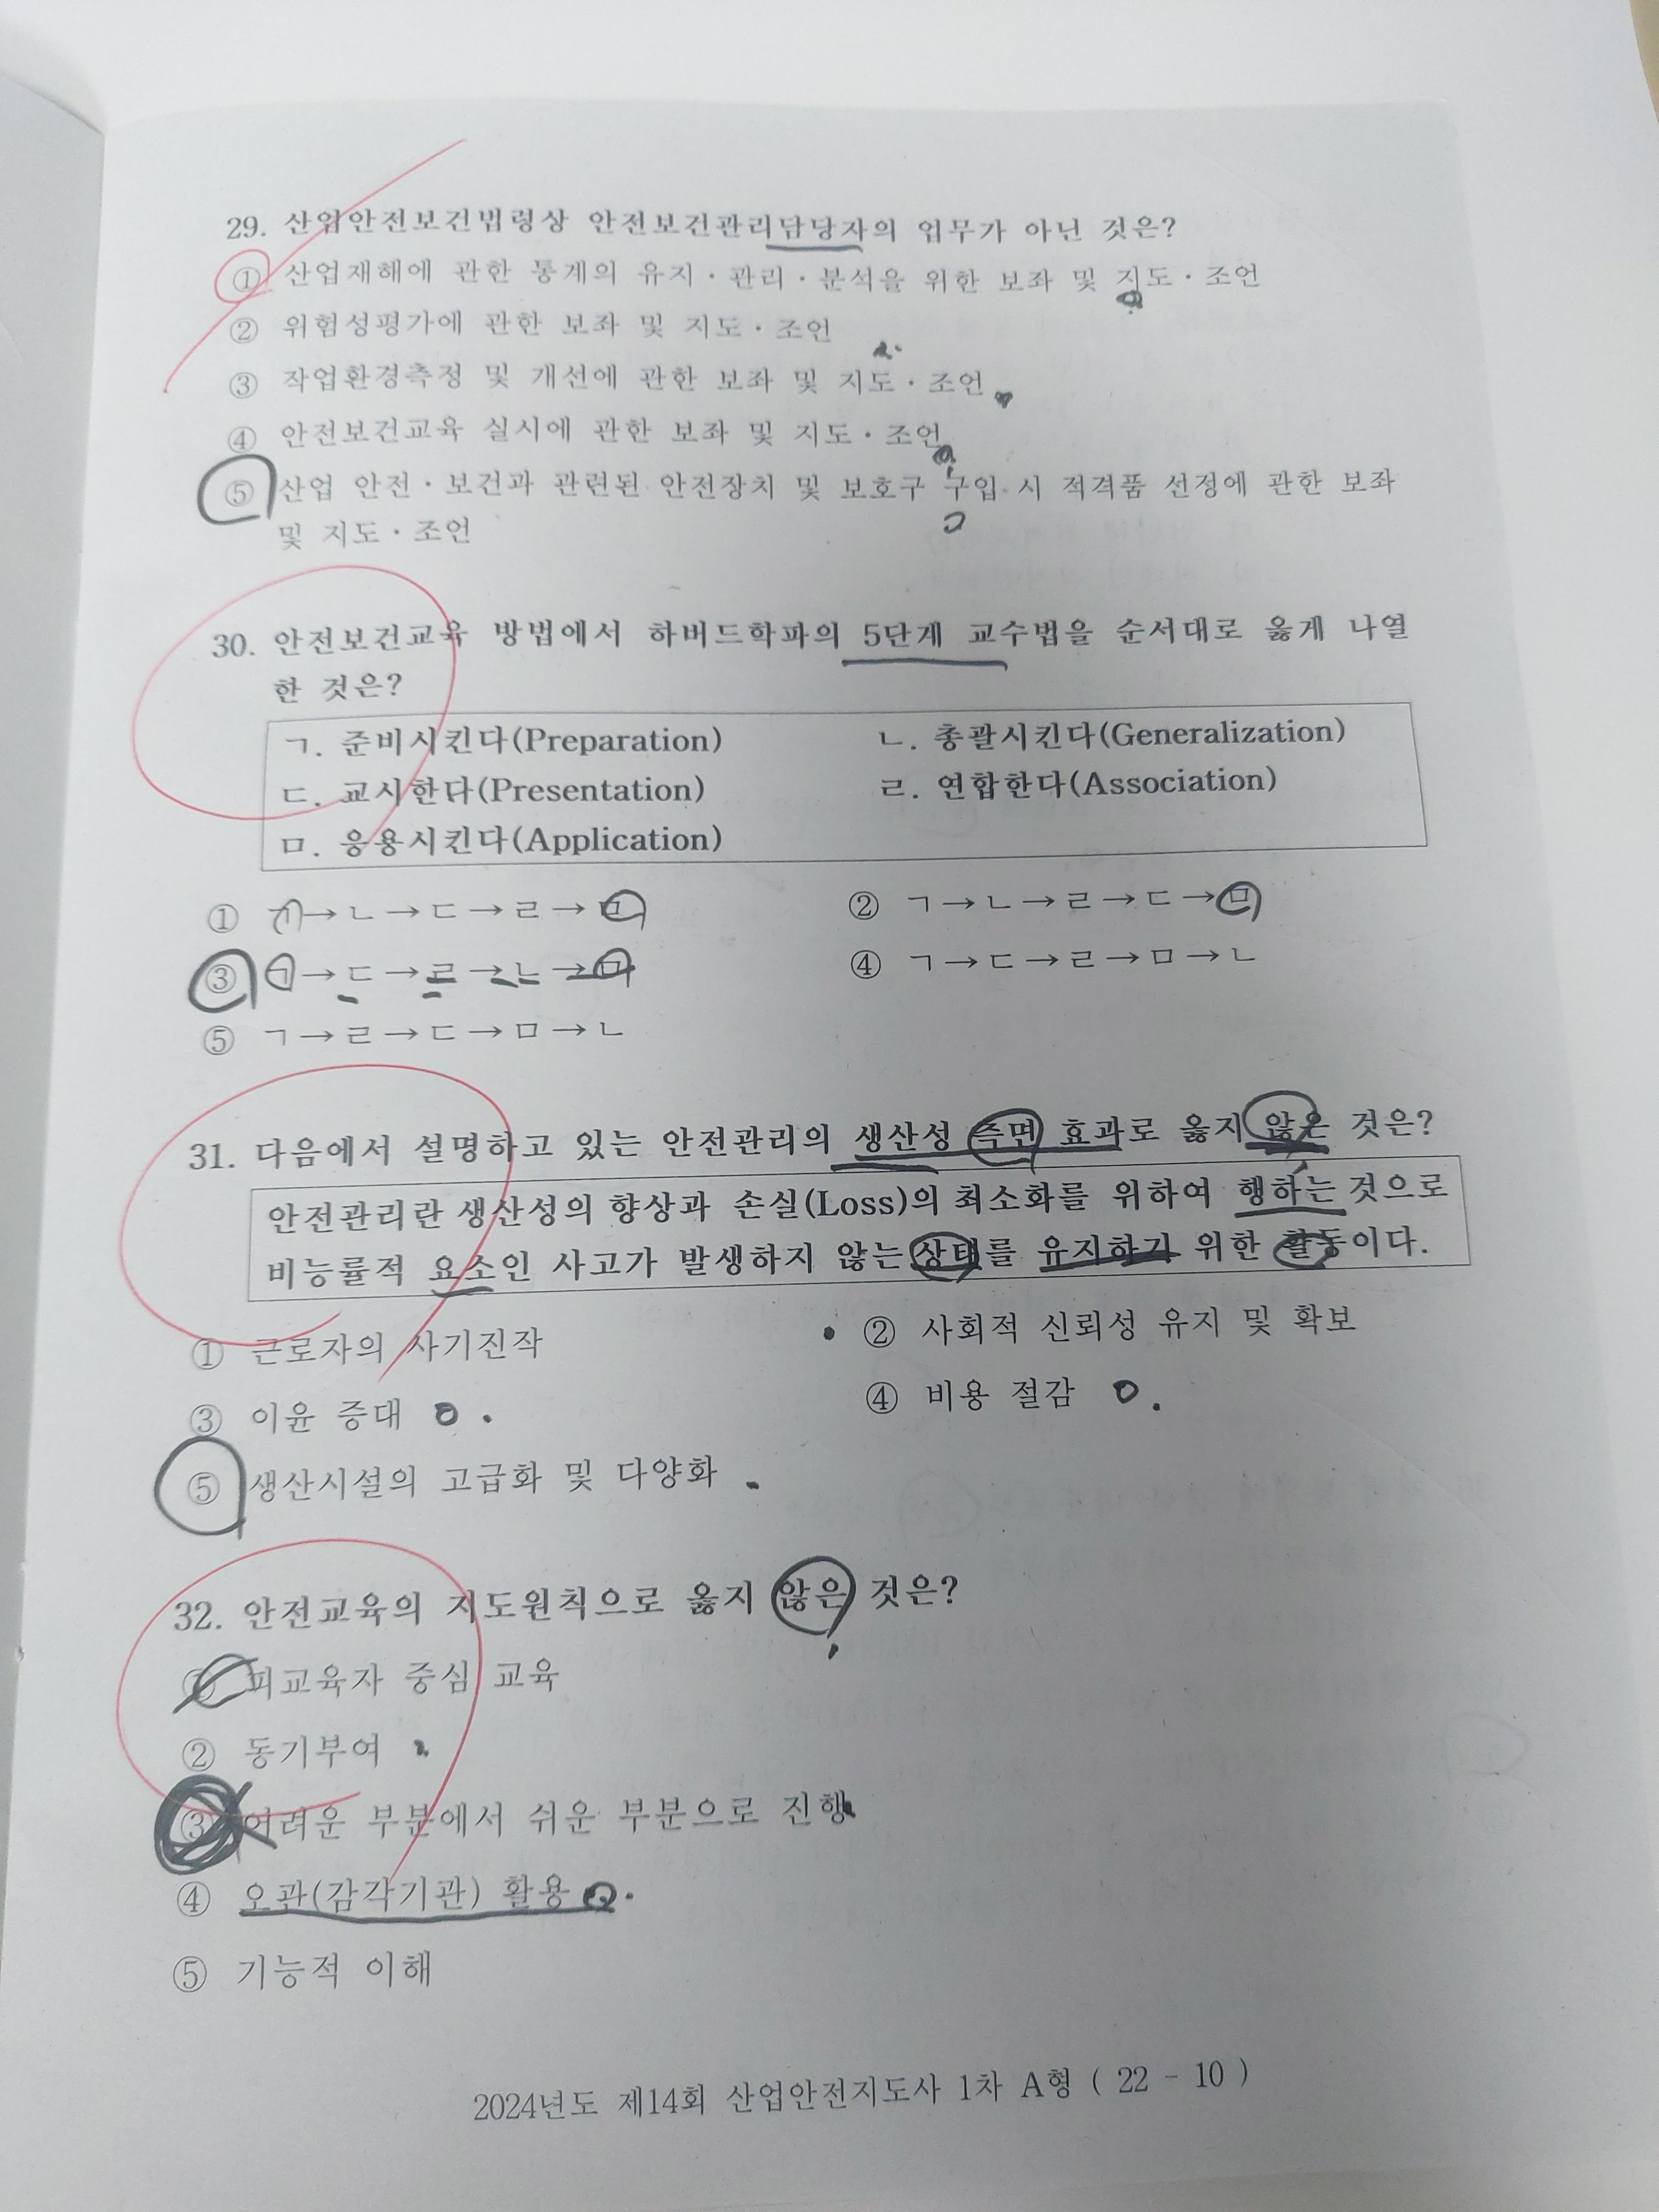 29. 산업안전보건법령상 안전보건관리담당자의 업무가 아닌 것은?
① 산업재해에 관한 통계의 유지·관리·분석을 위한 보좌 및 지도·조언
② 위험성평가에 관한 보좌 및 지도·조언
③ 작업환경측정 및 개선에 관한 보좌 및 지도·조언
④ 안전보건교육 실시에 관한 보좌 및 지도·조언
⑤ 산업 안전·보건과 관련된 안전장치 및 보호구 구입 시 적격품 선정에 관한 보좌
및 지도·조언
30. 안전보건교육 방법에서 하버드학파의 5단계 교수법을 순서대로 옳게 나열
한 것은?
ㄱ. 준비시킨다(Preparation) ㄴ. 총괄시킨다(Generalization)
ㄷ. 교시한다(Presentation) ㄹ. 연합한다(Association)
ㅁ. 응용시킨다(Application)
① ㄱ→ㄴ→ㄷ→ㄹ→ㅁ ② ㄱ→ㄴ→ㄹ→ㄷ→ㅁ
③ ㄱ→ㄷ→ㄹ→ㄴ→ㅁ ④ ㄱ→ㄷ→ㄹ→ㅁ→ㄴ
⑤ ㄱ→ㄹ→ㄷ→ㅁ→ㄴ
31. 다음에서 설명하고 있는 안전관리의 생산성 측면 효과로 옳지 않은 것은?
안전관리란 생산성의 향상과 손실(Loss)의 최소화를 위하여 행하는 것으로
비능률적 요소인 사고가 발생하지 않는 상태를 유지하기 위한 활동이다.
① 근로자의 사기진작 ② 사회적 신뢰성 유지 및 확보
③ 이윤 증대 ④ 비용 절감
⑤ 생산시설의 고급화 및 다양화
32. 안전교육의 지도원칙으로 옳지 않은 것은?
① 피교육자 중심 교육
② 동기부여
③ 어려운 부분에서 쉬운 부분으로 진행
④ 오관(감각기관) 활용
⑤ 기능적 이해
2024년도 제14회 산업안전지도사 1차 A형 ( 22 - 10 )